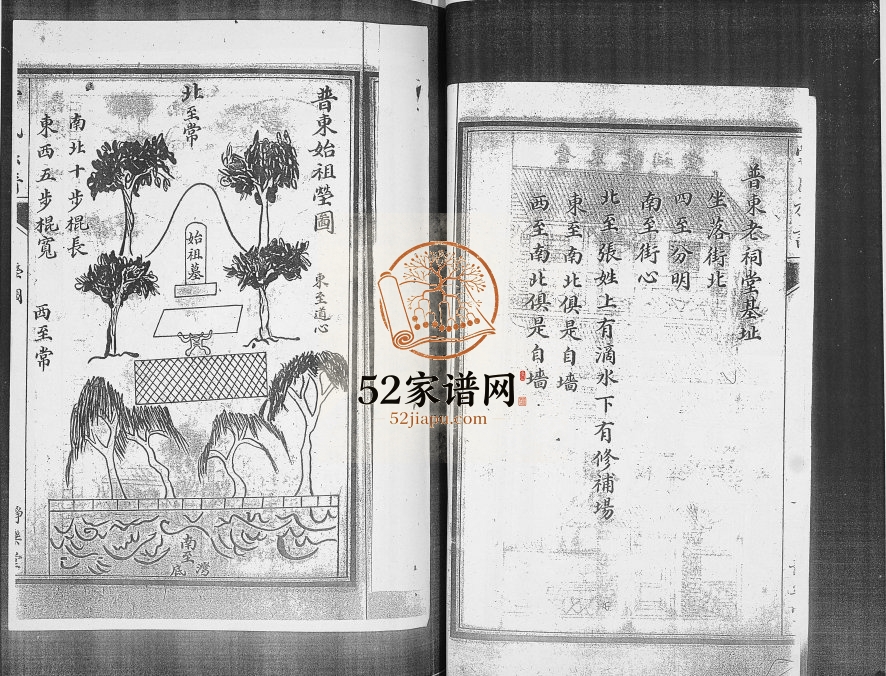 普東老祠堂基址
坐落街北
四至分明
南至街心
北至張姓上有滴水下有修補場
東至南北俱是自墻
西至南北俱是自墻
普東始祖塋圖
北至常
南北十步棍長
東西五步棍寬
始祖墓
東至道心
西至常
南至灣底
塋圖
52家谱网
52jiapu.com